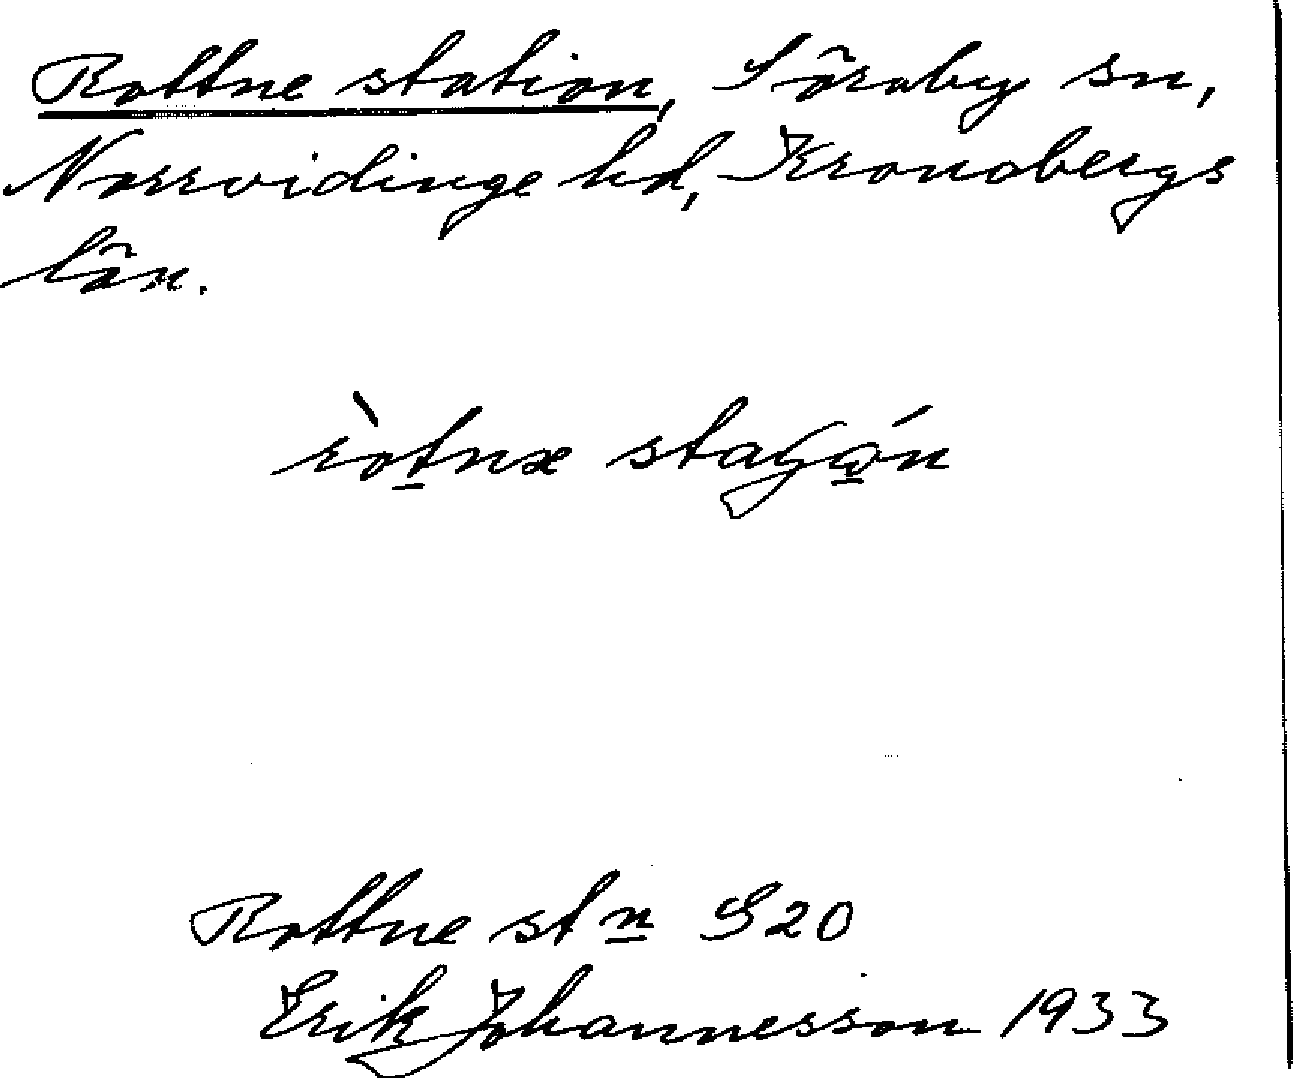 Rottne station, Söraby sn,
Norrvidinge hd, Kronobergs
län.
Rottne stn S20
Erik Johannesson 1933